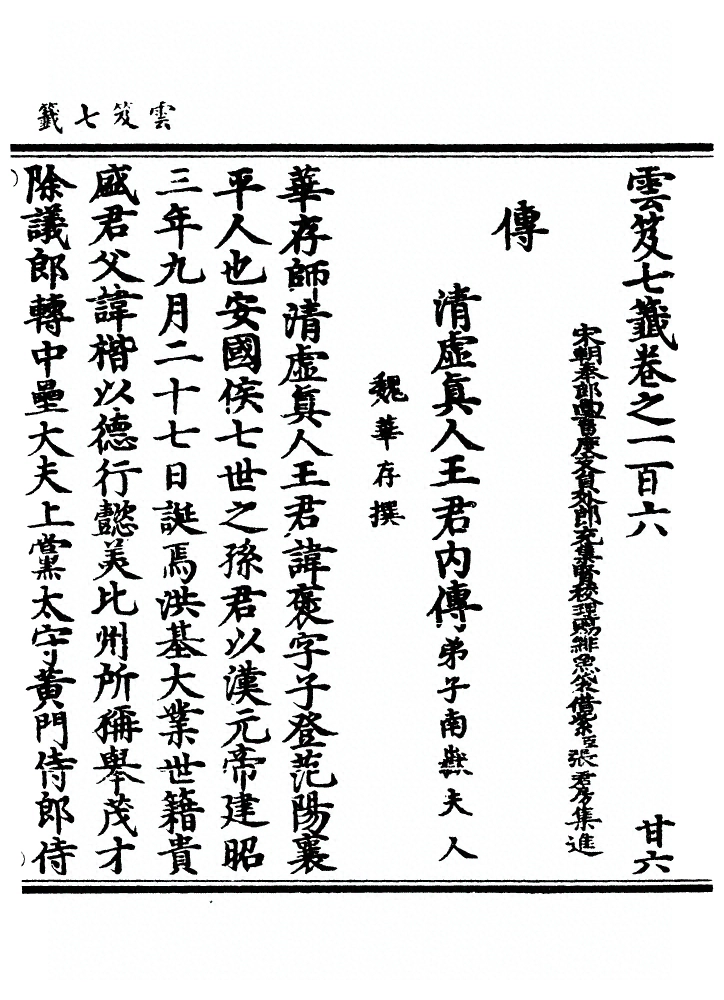 雲笈七籤
雲笈七籤卷之一百六 廿六
宋朝奉郎尚書度支員外郎充集賢校理賜緋魚袋借紫臣張君房集進
傳
清虛真人王君內傳弟子南嶽夫人
魏華存撰
華存師清虛真人王君諱褒字子登范陽襄
平人也安國侯七世之孫君以漢元帝建昭
三年九月二十七日誕焉洪基大業世籍貴
盛君父諱楷以德行懿美比州所稱舉茂才
除議郎轉中壘大夫上黨太守黃門侍郎侍